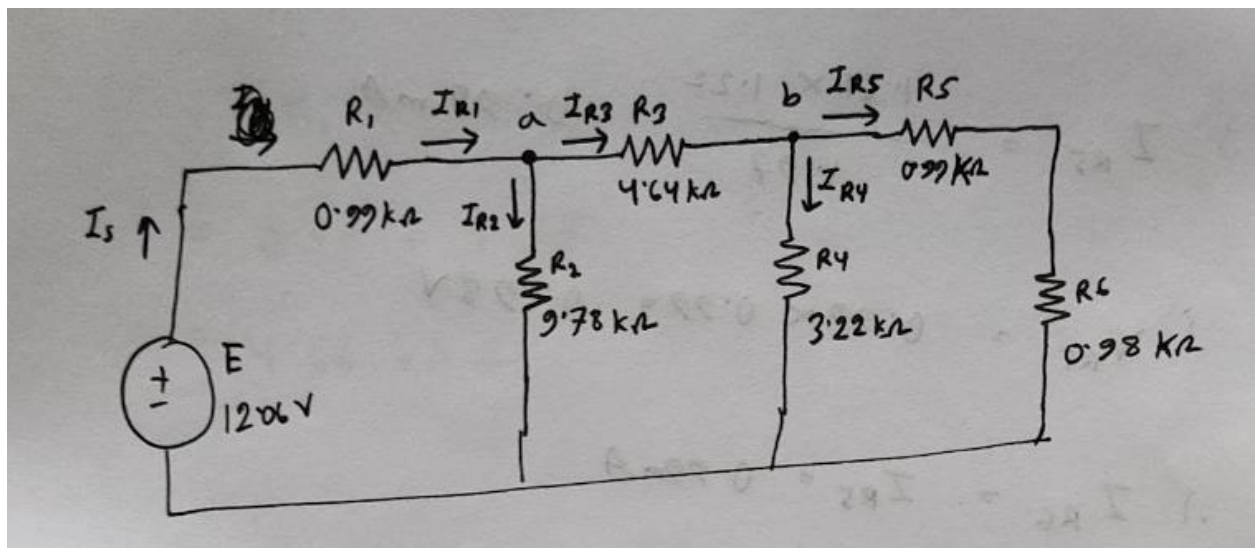 R1 IR1 a IR3 R3 b IR5 R5
Is
0.99kΩ
IR2
4.64kΩ
IR4
0.99kΩ
R2
9.78kΩ
R4
3.22kΩ
R6
0.98 KΩ
+
-
E
12.06V